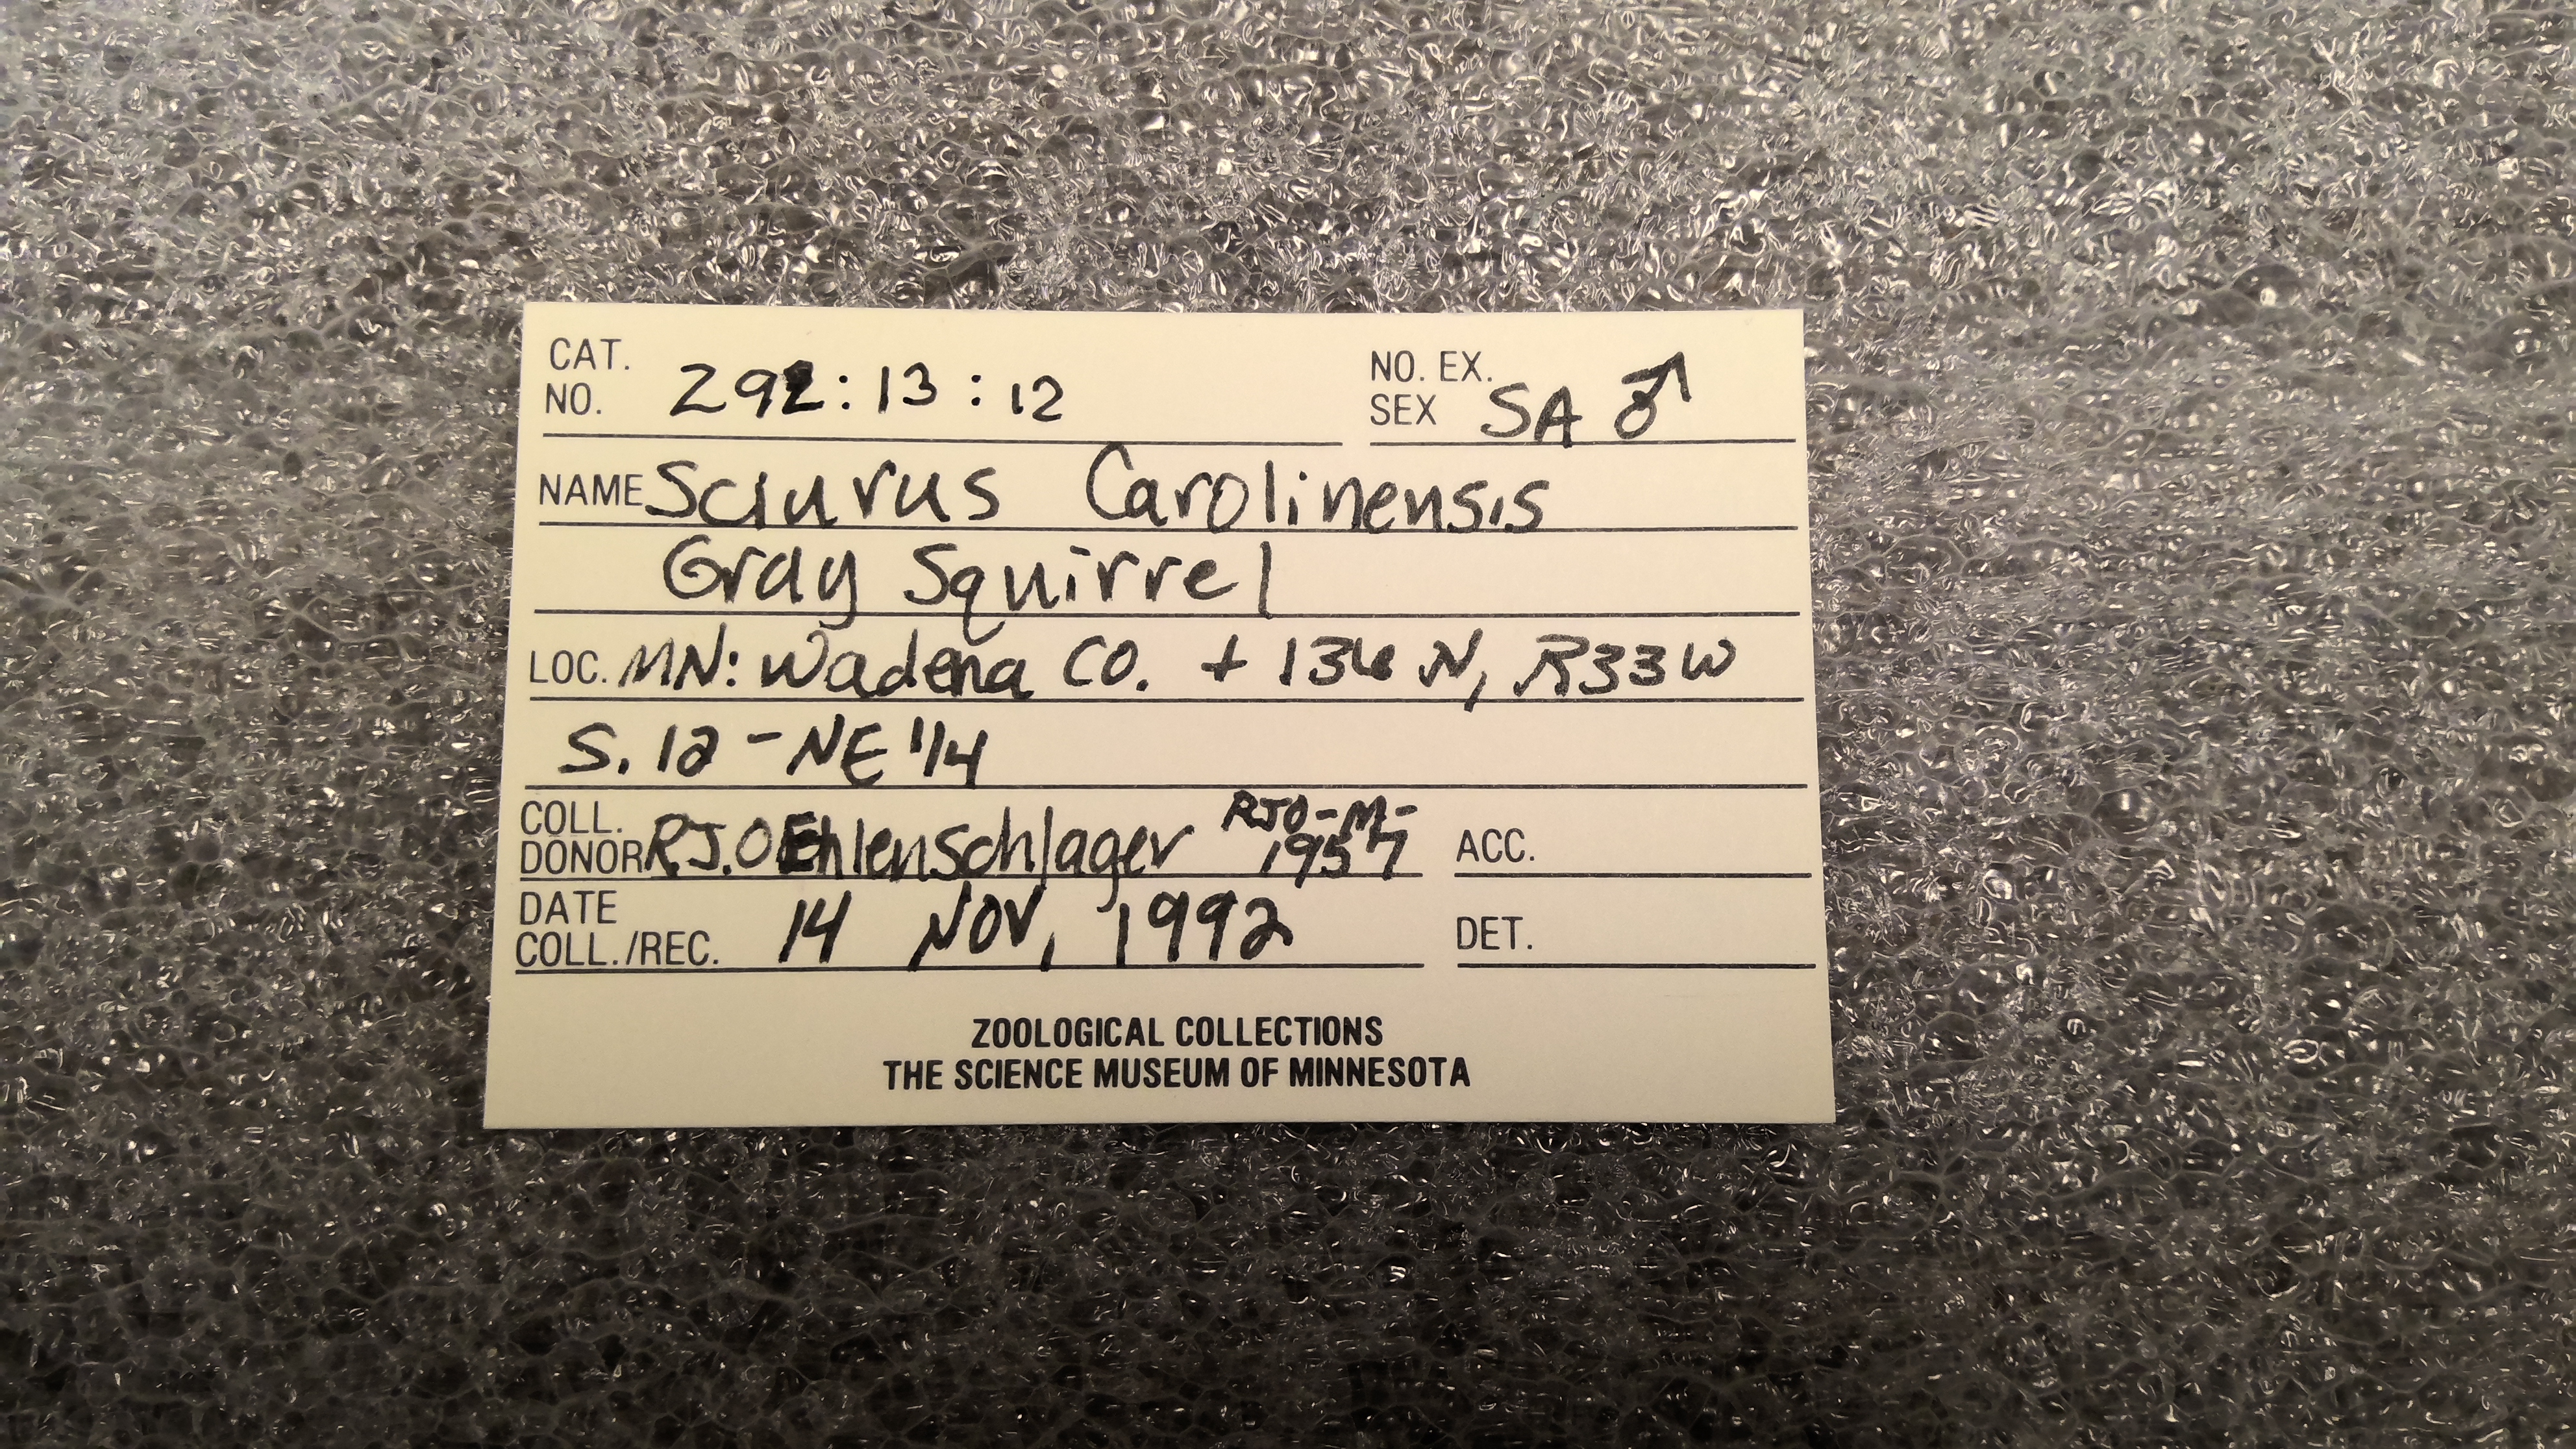 CAT. NO. Z92:13:12
NO. EX. SEX SA ♂
NAME Sciurus Carolinensis
Gray Squirrel
LOC. MN: Wadena CO. + 136 N, R33W
S. 12 - NE 1/4
COLL. DONOR R.J. OEhlenschlager RJO-M-1957
ACC.
DATE COLL./REC. 14 NOV, 1992
DET.
ZOOLOGICAL COLLECTIONS
THE SCIENCE MUSEUM OF MINNESOTA